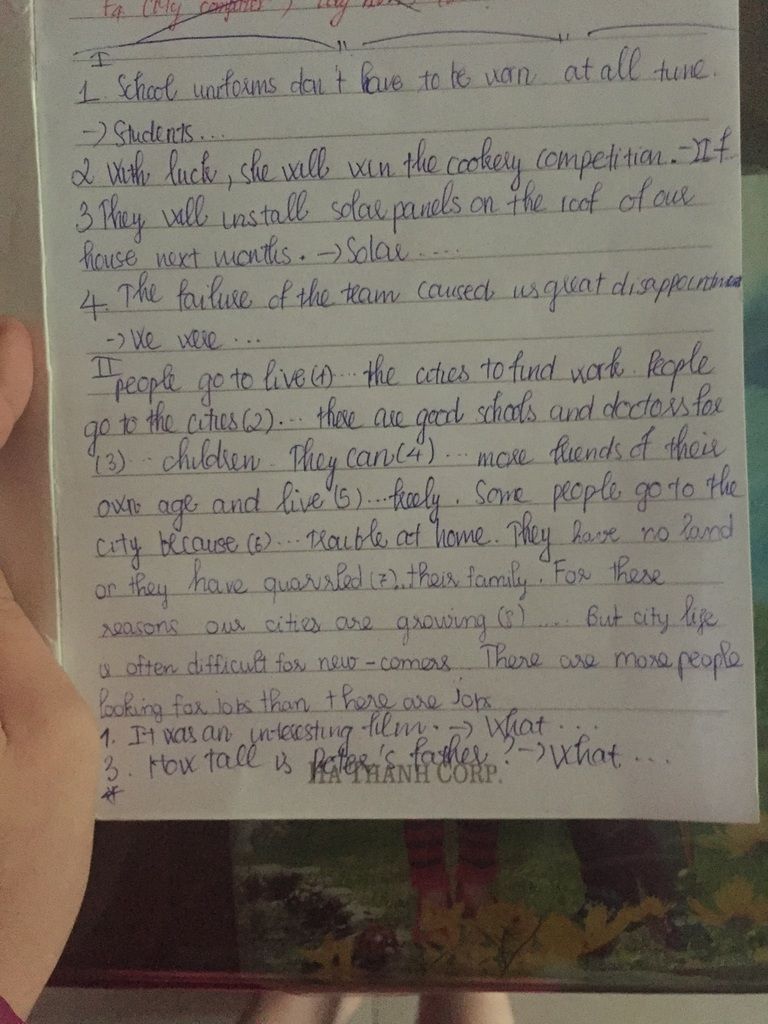 I
1. School uniforms don't have to be worn at all time.
-> Students...
2 With luck, she will win the cookery competition. -> If
3 They will install solar panels on the roof of our
house next months. -> Solar ....
4. The failure of the team caused us great disappointment
-> We were ...
II
people go to live (1)... the cities to find work. People
go to the cities (2)... there are good schools and doctors for
(3)... children. They can (4)... more friends of their
own age and live (5)... freely. Some people go to the
city because (6)... trouble at home. They have no land
or they have quarrled (7)... their family. For these
reasons our cities are growing (8).... But city life
is often difficult for new-comers. There are more people
looking for jobs than there are jobs
1. It was an interesting film. -> What ...
3. How tall is Peter's father? -> What ...
HA THANH CORP.